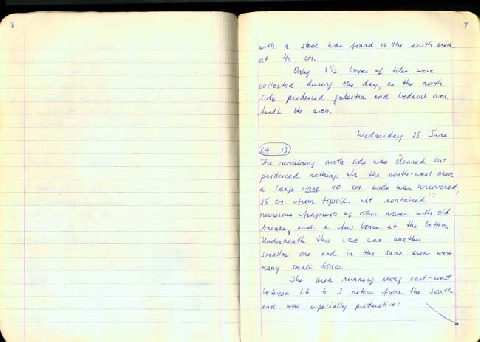 6
7
with a steel was found in the south area
at 40 cm.
Only 1½ boxes of tiles were
collected during the day, as the north
side produced and bedrock over
both the area.
Wednesday 25 June
The remaining north side was cleared but
produced nothing. In the south-west area
a large vase 40 cm. wide was uncovered,
15 cm. from topsoil. It contained
numerous fragments of other vases with old
breaks, and a few bones at the bottom.
Underneath this vase was another
smaller one and in the same area were
many small bones.
The area running along east-west
between 2.6 to 3 metres from the south
end was especially productive: